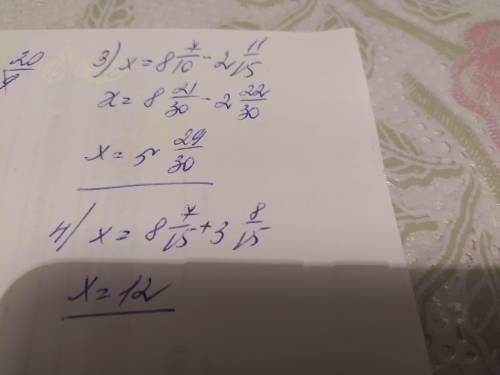 20/9
3) x = 8 7/10 - 2 11/15
x = 8 21/30 - 2 22/30
x = 5 29/30
4) x = 8 7/15 + 3 8/15
x = 12